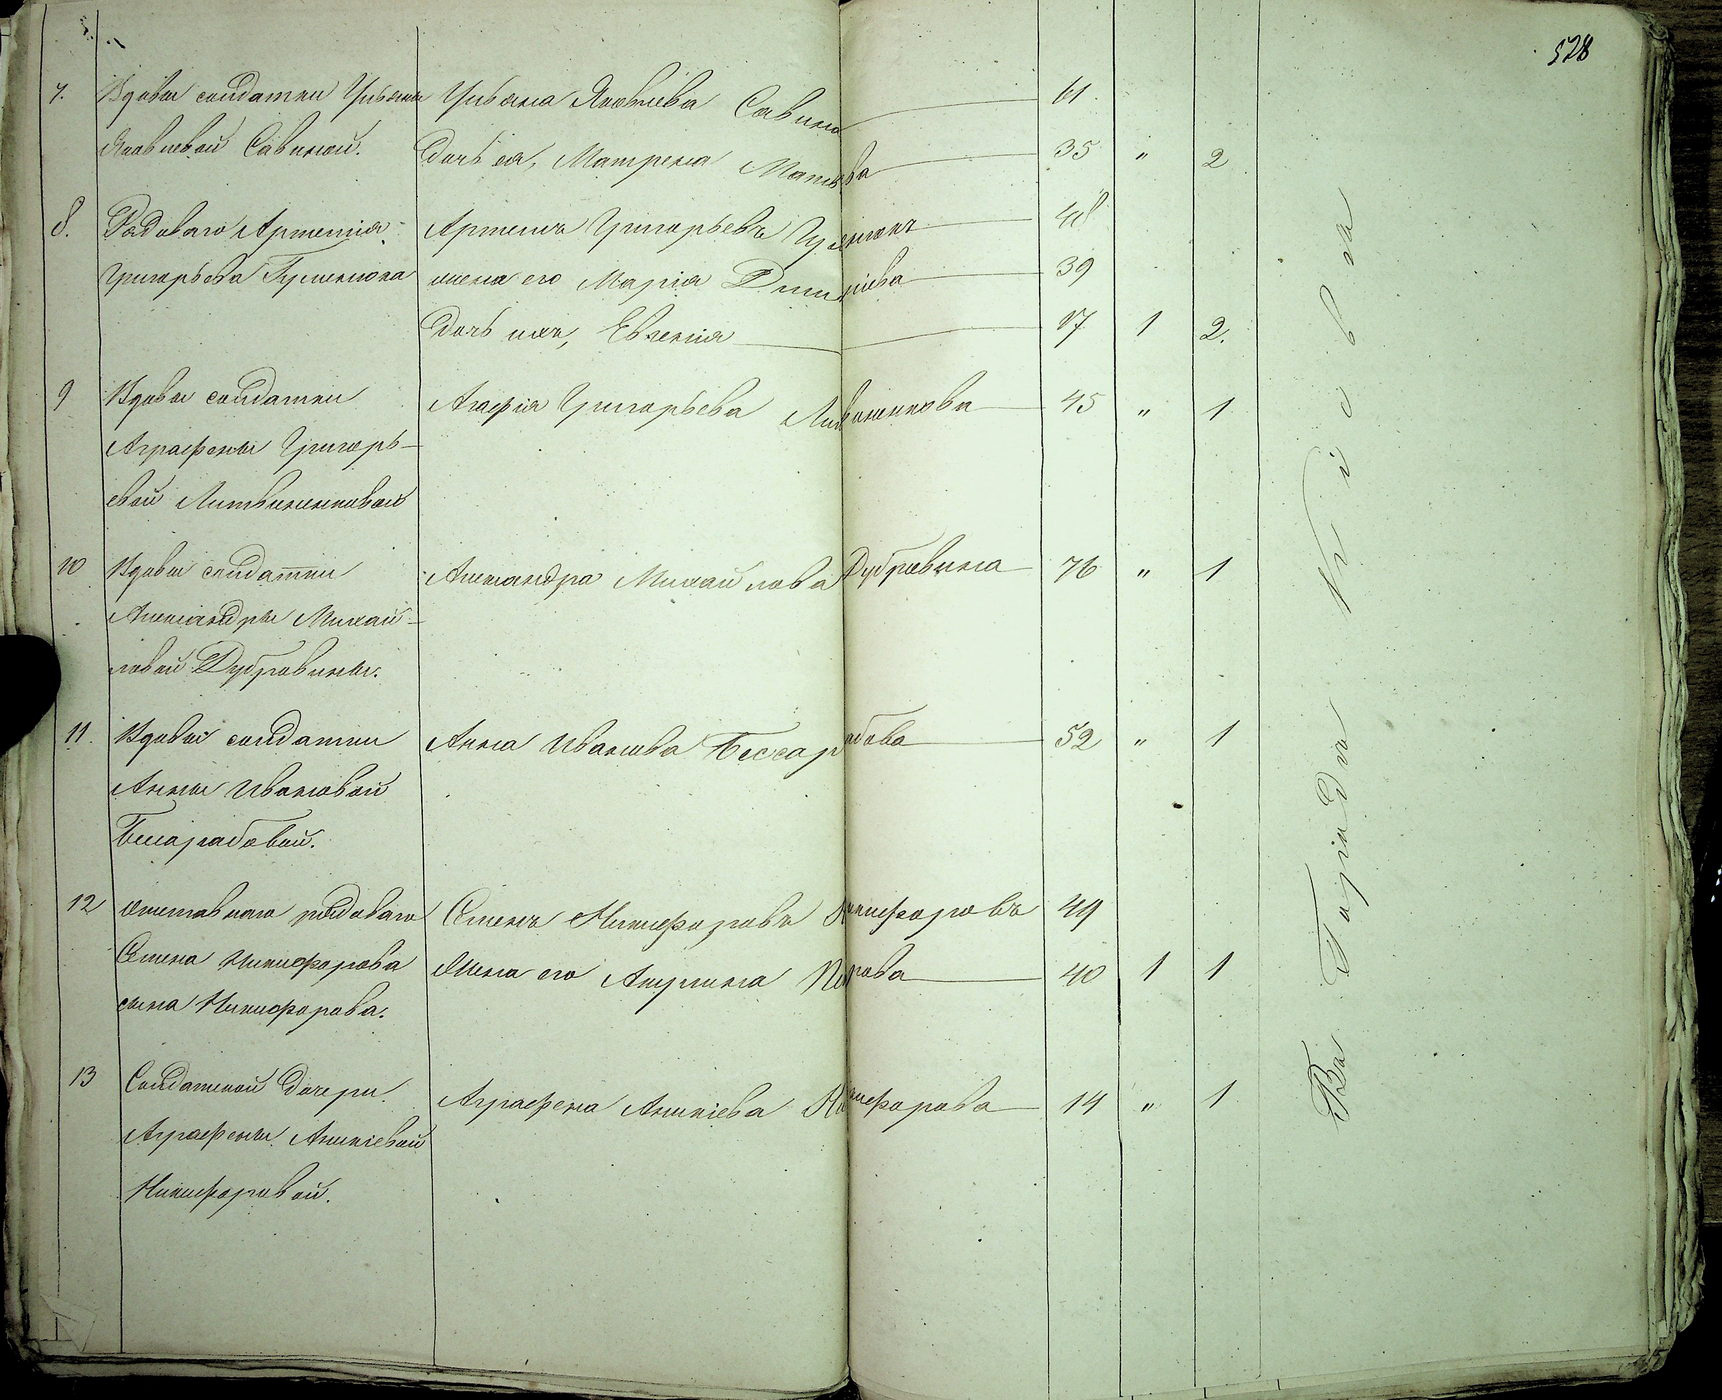 528
7. Вдовы солдатки Ульяны Ульяна Яковлева Савина 61
Яковлевой Савиной. Дочь ея, Матрена 35 " 2
8. Рядоваго Артемія Артемъ Григорьевъ 48
Григорьева жена его Марія 39
Дочь ихъ, Евгенія 17 1 2.
9 Вдовы солдатки Агафія Григорьева Литвиненкова 45 " 1
Аграфены Григорь-
евой Литвиненковой
10 Вдовы солдатки Александра Михайлова Дубровина 76 " 1
Александры Михай-
ловой Дубровины.
11. Вдовы солдатки Анна Иванова Бессарабова 52 " 1
Анны Ивановой
Бессарабовой.
12 отставнаго рядоваго Семенъ Никифоровъ Никифоровъ 49
Семена Никифорова Жена его Акулина 40 1 1
сына Никифорова.
13 Солдатской дочери Аграфена Аникіева Никифорова 14 " 1
Аграфены Аникіевой
Никифоровой.